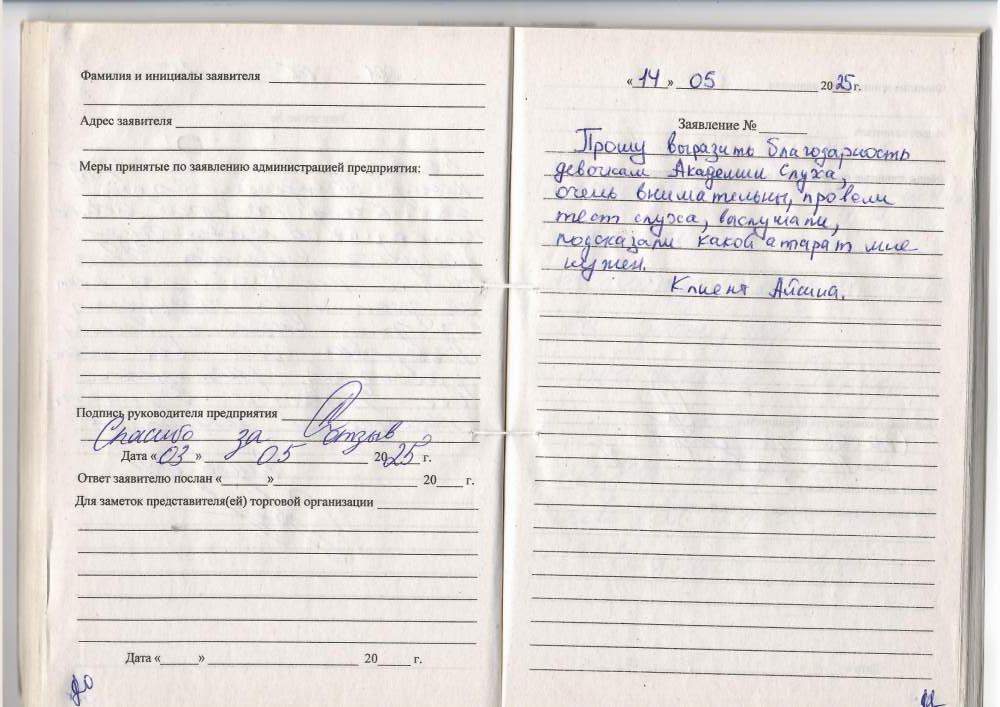 Фамилия и инициалы заявителя
Адрес заявителя
Меры принятые по заявлению администрацией предприятия:
Подпись руководителя предприятия
Спасибо за отзыв
Дата «03» 05 2025 г.
Ответ заявителю послан «      »             20     г.
Для заметок представителя(ей) торговой организации
Дата «      »             20     г.
«14» 05 2025 г.
Заявление №
Прошу выразить благодарность
девочкам Академии Слуха,
очень внимательны, провели
тест слуха, выслушали,
подсказали какой апарат мне
нужен.
Клиент